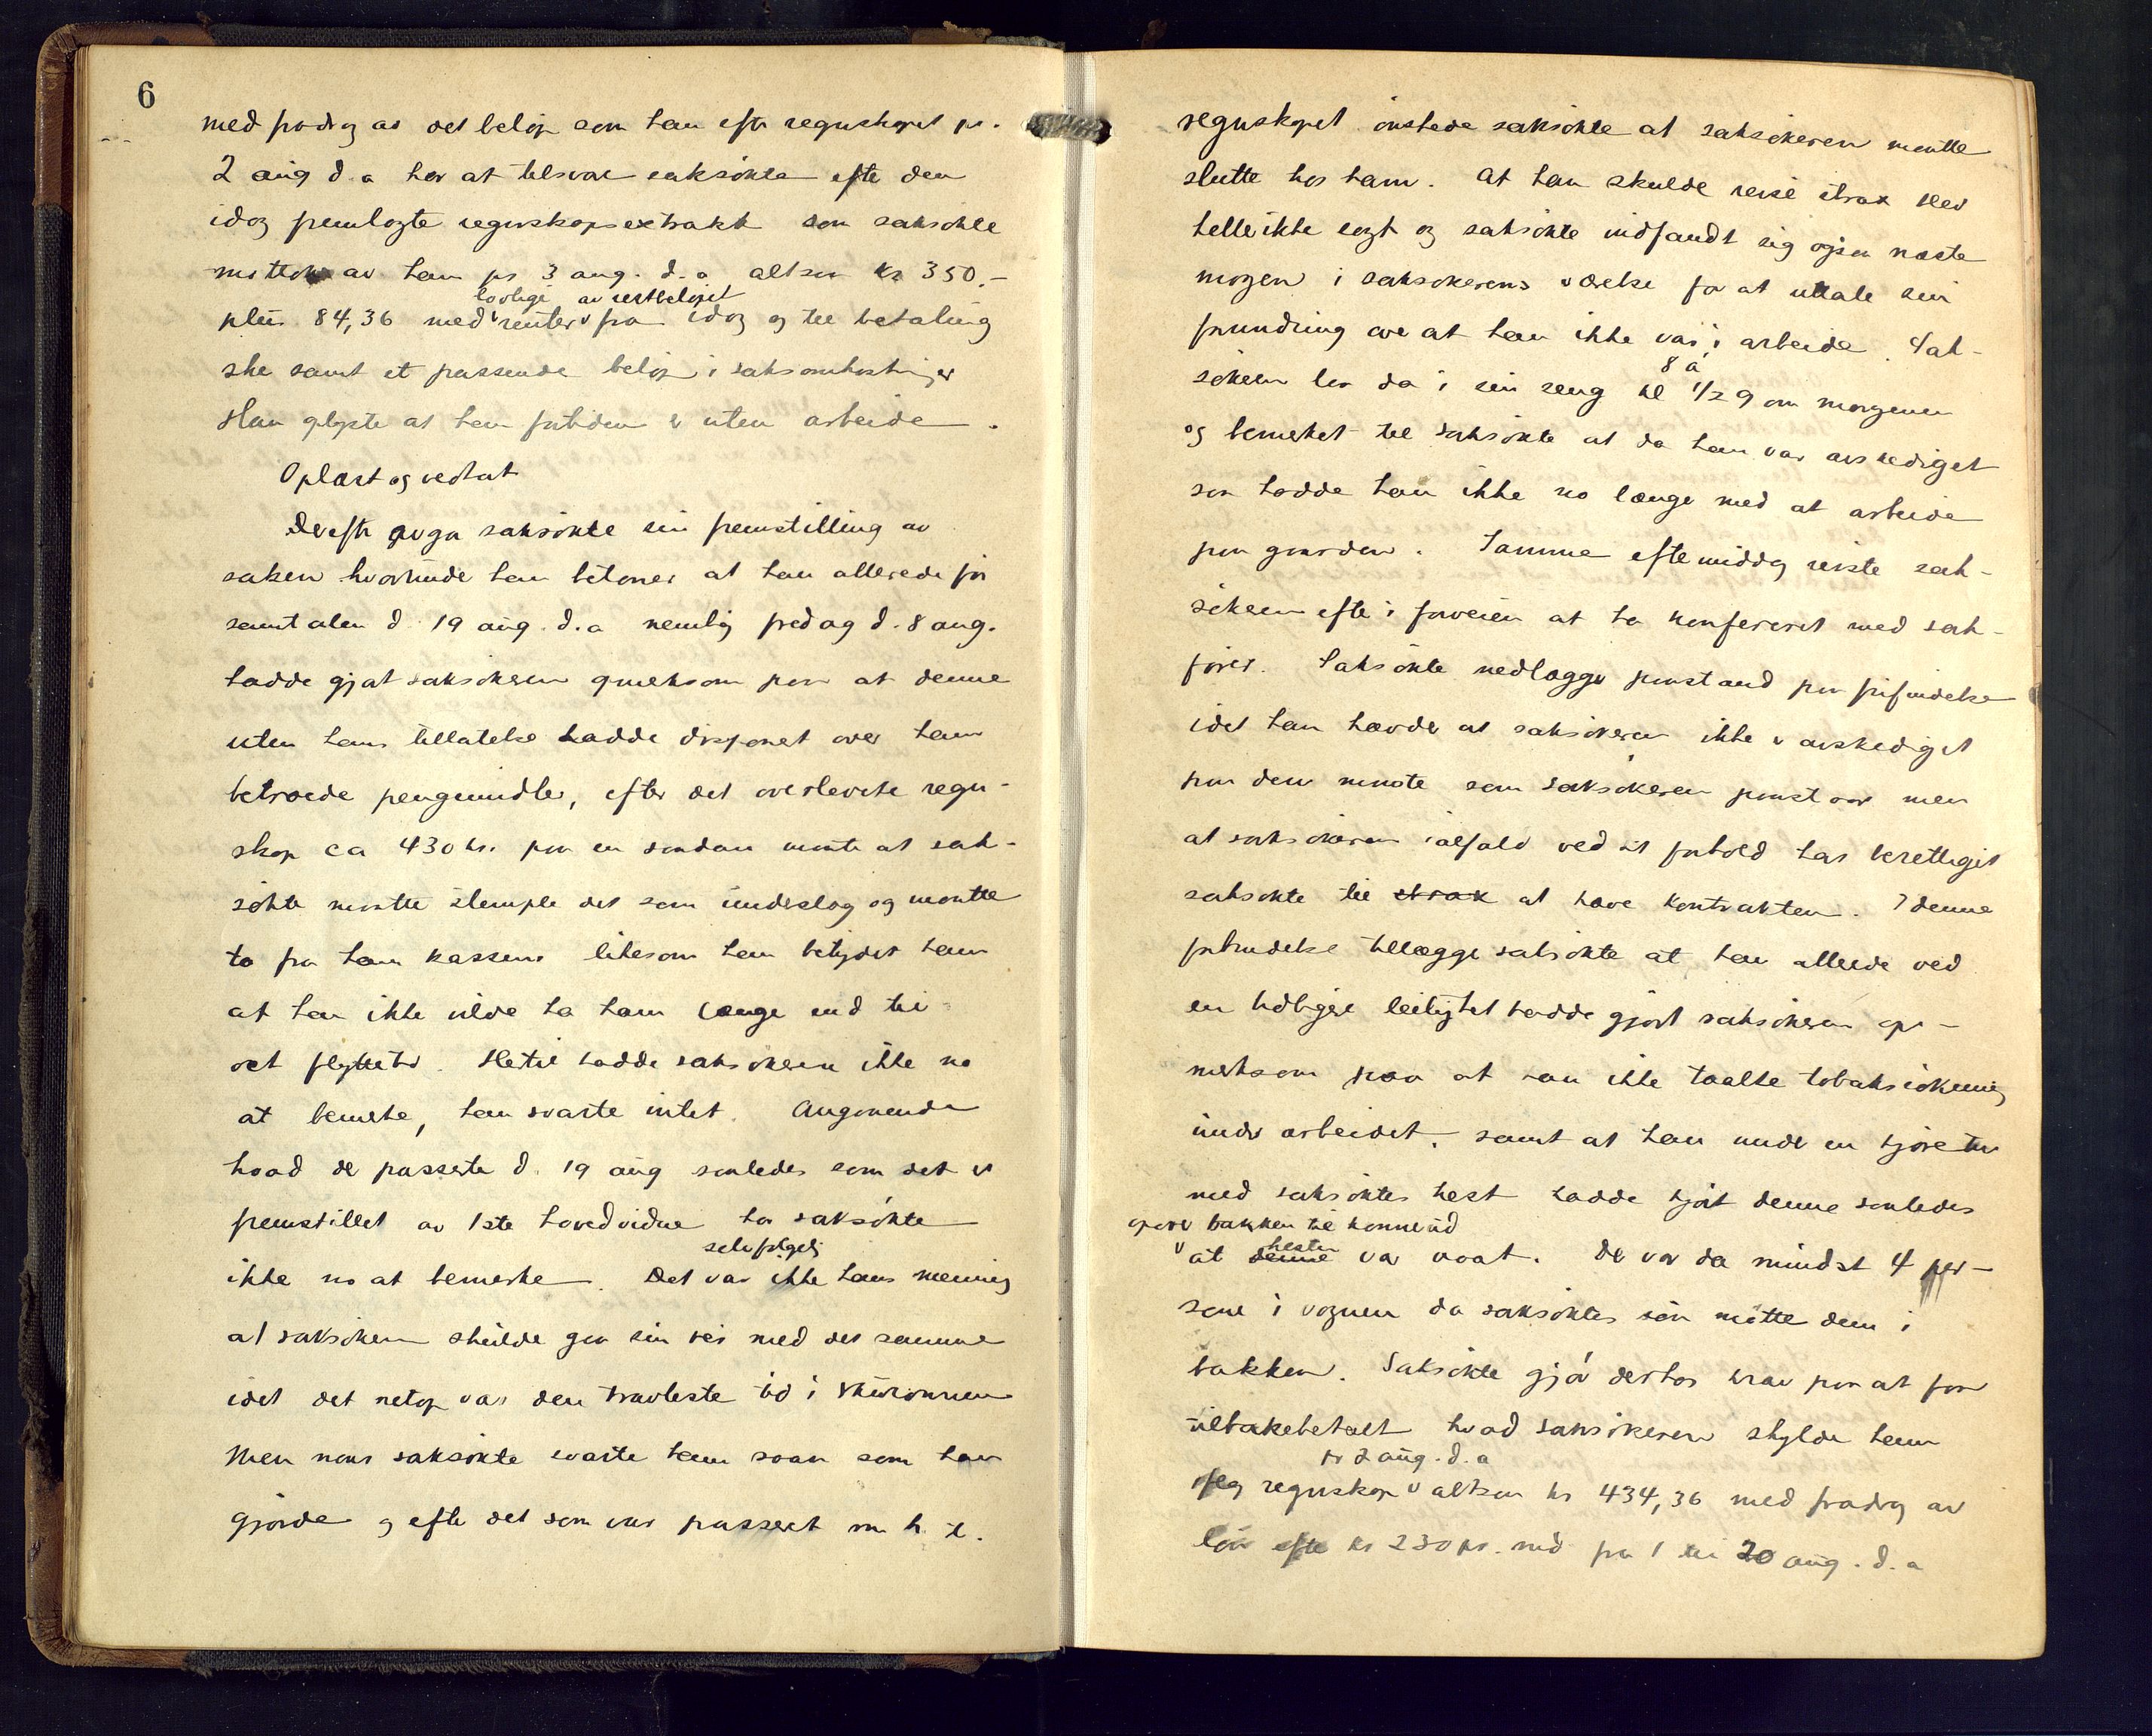 6
med fradrag av det beløp som han efter regnskapet pr.
2 aug d.a har at tilsvare saksökte efter den
idag fremlagte regnskapsextrakt som saksökte
mottok av ham pr 3 aug. d.a altsaa kr 350.-
lovlige av restbeløpet
plus 84,36 med renter fra idag og til betaling
sker samt et passende beløp i saksomkostninger
Han oplyste at han fortiden er uten arbeide.
Oplæst og vedtat
Derefter avga saksökte sin fremstilling av
saken hvorunder han betoner at han allerede før
samtalen d. 19 aug. d.a nemlig fredag d. 8 aug.
hadde gjort saksökeren opmerksom paa at denne
uten hans tillatelse hadde disponert over ham
betroede pengemidler, efter det overleverte regn-
skap ca 430 kr. paa en saadan maate at sak-
sökte maatte stemple det som underslag og maatte
ta fra ham kassen likesom han betydet ham
at han ikke vilde ha ham længer end til
oct flyttetid. Hertil hadde saksökeren ikke no
at bemerke, han svarte intet. Angaaende
hvad der passerte d. 19 aug saaledes som det er
fremstillet av 1ste hovedvidne har saksökte
selvfølgelig
ikke no at bemerke. Det var ikke hans mening
at saksökeren skulde gaa sin vei med det samme
idet det netop var den travleste tid i skuronnen
Men naar saksökte svarte ham saan som han
gjorde og efter det som var passeret m.h.t.
regnskapet önskede saksökte at saksökeren maatte
slutte hos ham. At han skulde reise strax blev
heller ikke sagt og saksökte indfandt sig ogsaa næste
morgen i saksökerens værelse for at uttale sin
forundring over at han ikke var i arbeide. Sak-
8 a
sökeren laa da i sin seng kl 1/2 9 om morgenen
og bemerket til saksökte at da han var avskediget
saa hadde han ikke no længer med at arbeide
paa gaarden. Samme eftermiddag reiste sak-
sökeren efter i forveien at ha konfereret med sak-
förer. Saksökte nedlægger paastand paa frifindelse
idet han hævder at saksökeren ikke er avskediget
paa den maate som saksökeren paastaar men
at saksökeren ialfald ved sit forhold har berettiget
saksökte til strax at hæve kontrakten. I denne
forbindelse tillægger saksökte at han allerede ved
en tidligere leilighet hadde gjort saksökeren op-
merksom paa at han ikke taalte tobaksrökning
under arbeidet, samt at han under en kjøretur
med saksöktes hest hadde kjørt denne saaledes
opover bakken til
hesten
at denne var vaat. Der var da mindst 4 per-
soner i vognen da saksöktes sön mötte dem i
bakken. Saksökte gjör derhos krav paa at faa
tilbakebetalt hvad saksökeren skylder ham
pr 2 aug. d.a
ifølg regnskap altsaa kr 434,36 med fradrag av
lön efter kr 230 pr. md fra 1 til 20 aug. d.a